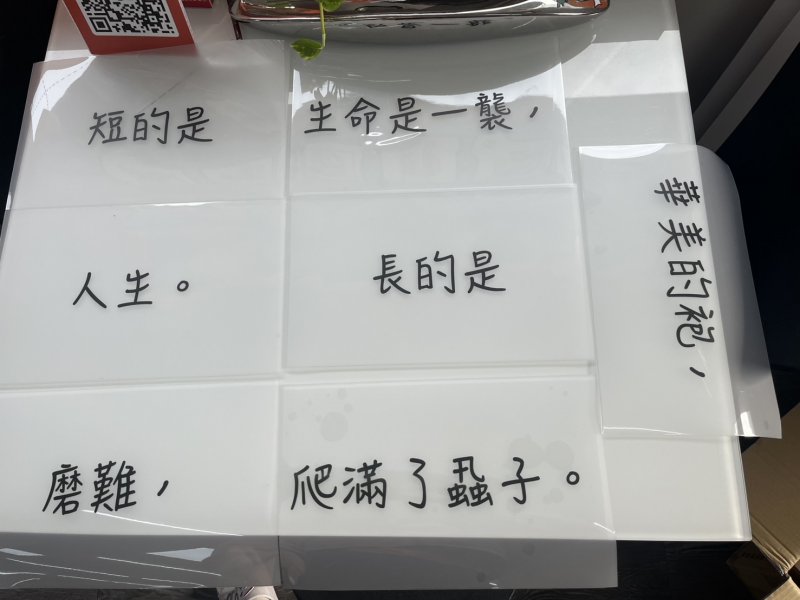 短的是
生命是一襲，
華美的袍，
人生。
長的是
磨難，
爬滿了蝨子。